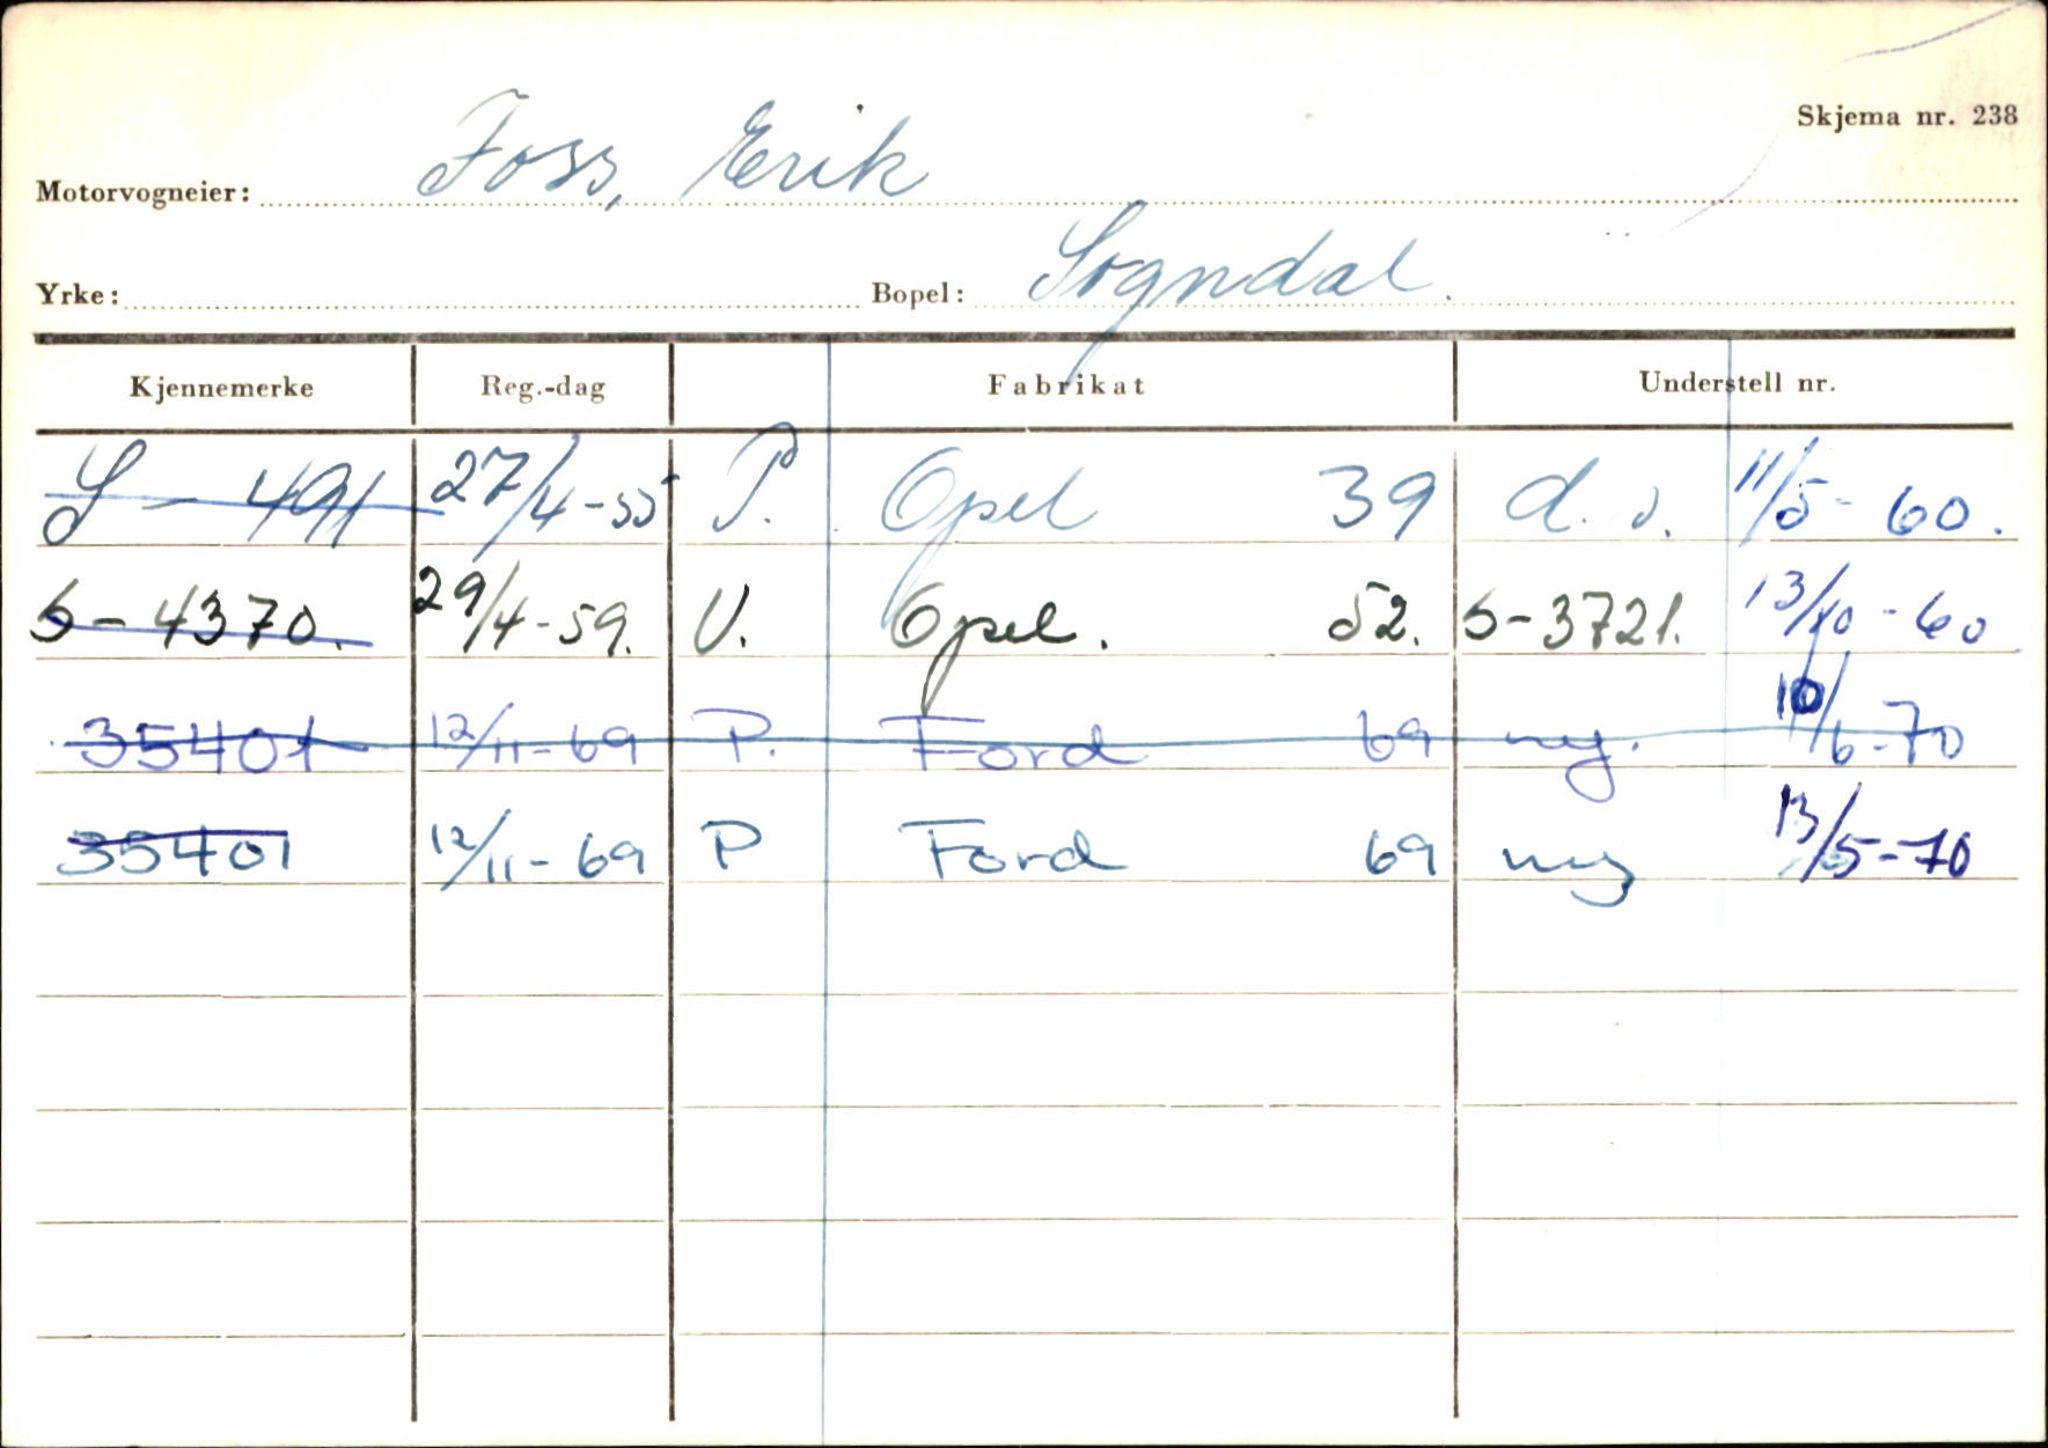 Skjema nr. 238
Motorvogneier: Foss, Erik
Yrke: Bopel: Sogndal.
Kjennemerke Reg.-dag Fabrikat Understell nr.
S - 491 27/4-55 P. Opel 39 d. s. 11/5-60.
S-4370. 29/4-59. V. Opel. 52. S-3721. 13/10-60
35401 12/11-69 P. Ford 69 ny. 10/6-70
35401 12/11-69 P Ford 69 ny 13/5-70